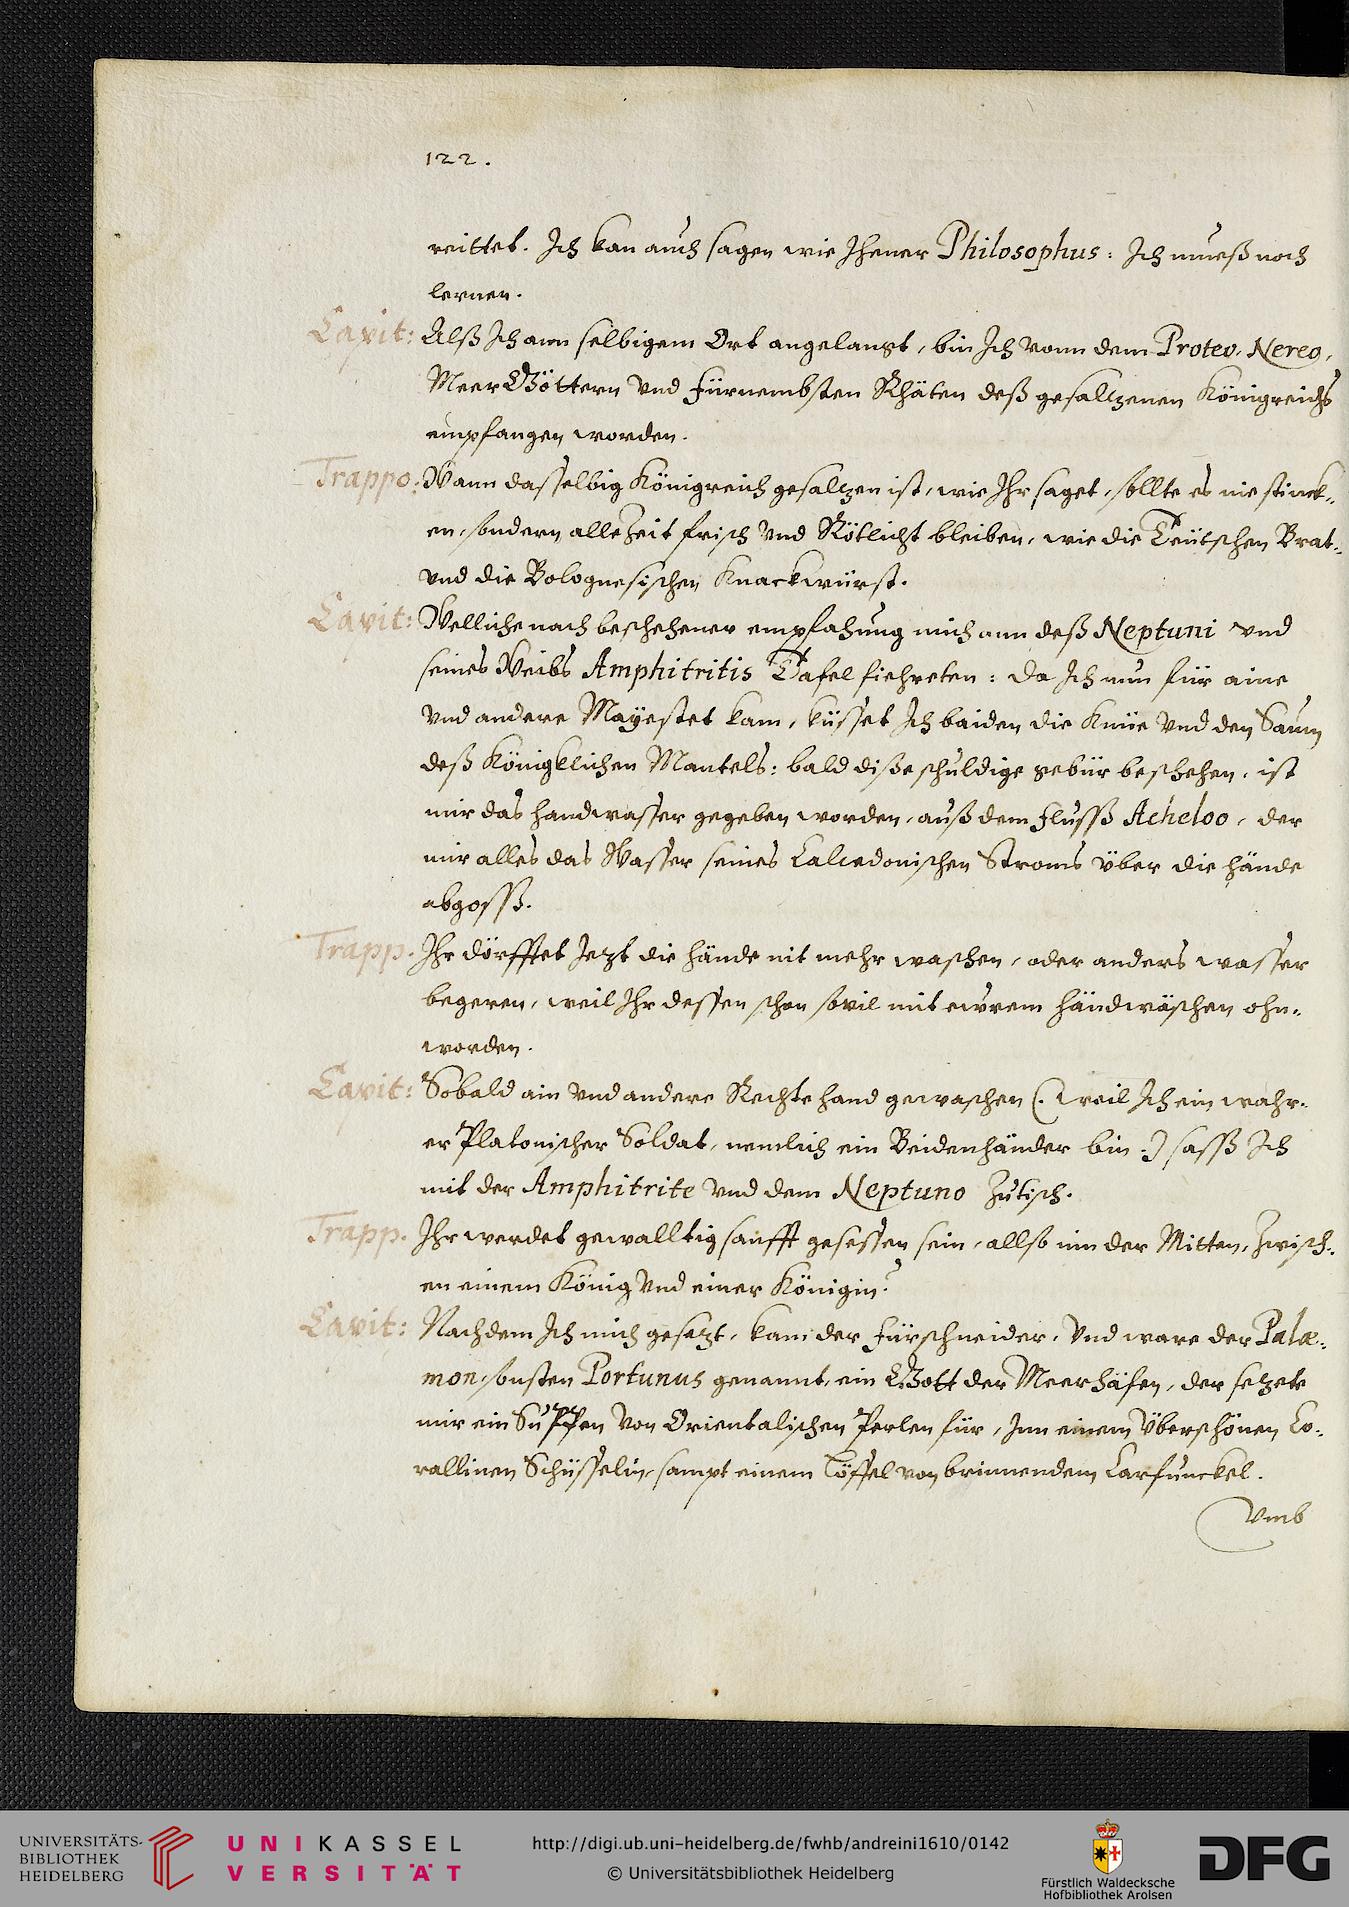 122.
reittet. Ich kan auch sagen wie Ihener Philosophus: Ich mueß noch
lernen.
Capit: Alß Ich ann selbigem Ort angelangt, bin Ich vonn dem Proteo, Nereo,
Meer Göttern vnd fürnembsten Rhäten deß gesaltzenen Königreichs
empfangen worden.
Trappo: Wann dasselbig Königreich gesaltzen ist, wie Ihr saget, sollte es nie stinck-
en, sondern allezeit frisch vnd Rötlicht bleiben, wie die Teütschen Brat-
vnd die Bolognesischen Knackwürst.
Capit: Welliche nach beschehener empfahung mich ann deß Neptuni vnd
seines Weibs Amphitritis Tafel fiehreten: da Ich nun für aine
vnd andere Mayestet kam, küsset Ich baiden die Knüe vnd den Saum
deß Königklichen Mantels: bald diße schuldige gebür beschehen, ist
mir das handwasser gegeben worden, auß dem flussß Acheloo, der
mir alles das Wasser seines Calcedonischen Stroms über die hände
abgossß.
Trapp. Ihr dörfftet Jezt die hände nit mehr waschen, oder anders wasser
begeren, weil Ihr dessen schon sovil mit ewrem händwäschen ohn-
worden.
Capit: Sobald ain vnd andere Rechte hand gewaschen (: weil Ich ein wahr-
er Platonischer Soldat, nemlich ein Beidenhänder bin :) sassß Ich
mit der Amphitrite vnd dem Neptuno zutisch.
Trapp. Ihr werdet gewalltig sanfft gesessen sein, allso inn der Mitten, zwisch-
en einem König vnd einer Königin?
Capit: Nachdem Ich mich gesezt, kam der fürschneider, vnd ware der Palæ-
mon, sonsten Portunus genannt, ein Gott der Meerhäfen, der setzete
mir ein Suppen von Orientalischen Perlen für, Inn einem überschönen Co-
rallinen Schüsselin, sampt einem Löffel von brinnendem Carfunckel.
vmb
UNIVERSITÄTS-
BIBLIOTHEK
HEIDELBERG
UNIKASSEL
VERSITÄT
http://digi.ub.uni-heidelberg.de/fwhb/andreini1610/0142
© Universitätsbibliothek Heidelberg
Fürstlich Waldecksche
Hofbibliothek Arolsen
DFG